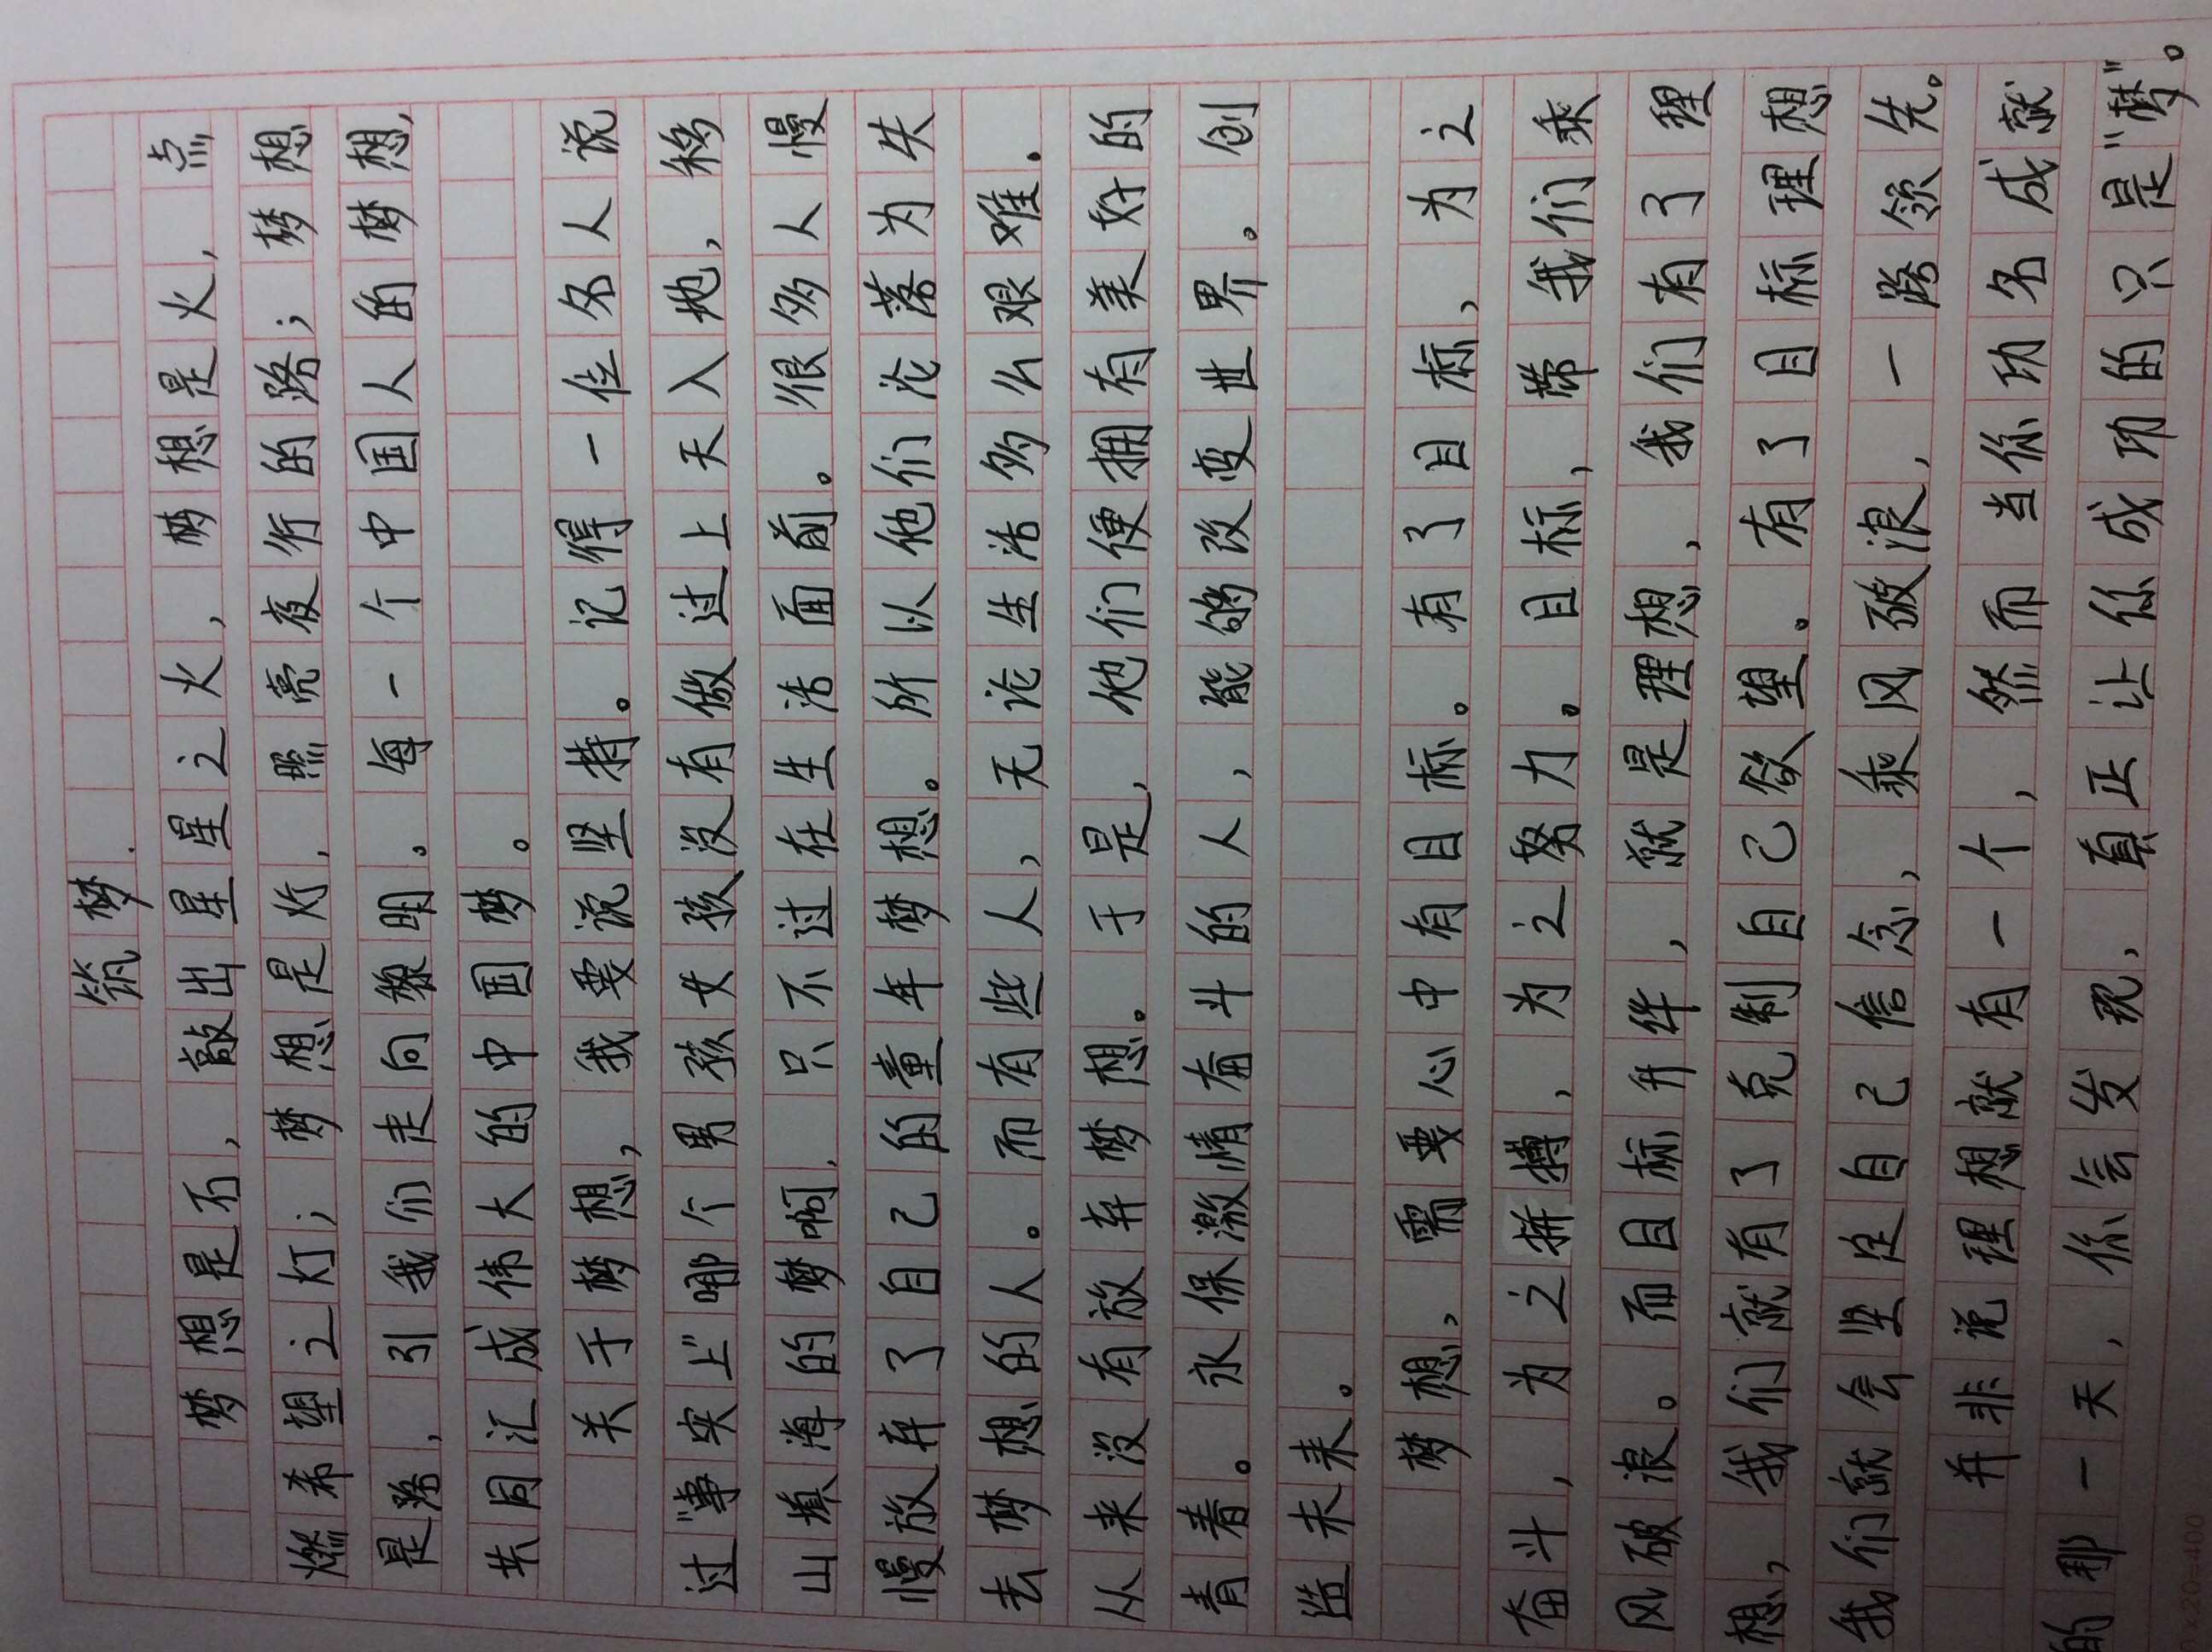 筑梦.
梦想是石，敲出星星之火，梦想是火，点
燃希望之灯；梦想是灯，照亮夜行的路；梦想
是路，引我们走向黎明。每一个中国人的梦想，
共同汇成伟大的中国梦。
关于梦想，我要说坚持。记得一位名人说
过"事实上"哪个男孩女孩没有做过上天入地，移
山填海的梦啊，只不过在生活面前。很多人慢
慢放弃了自己的童年梦想。所以他们沦落为失
去梦想的人。而有些人，无论生活多么艰难.
从来没有放弃梦想。于是，他们便拥有美好的
青春。永保激情奋斗的人，能够改变世界。创
造未来。
梦想，需要心中有目标。有了目标，为之
奋斗，为之拼搏，为之努力。目标，带我们乘
风破浪。而目标升华，就是理想，我们有了理
想，我们就有了克制自己欲望。有了目标理想
我们就会坚定自己信念，乘风破浪，一路领先。
并非说理想就有一个，然而当你功名成就
的那一天，你会发现，真正让你成功的只是"梦"。
×20=400